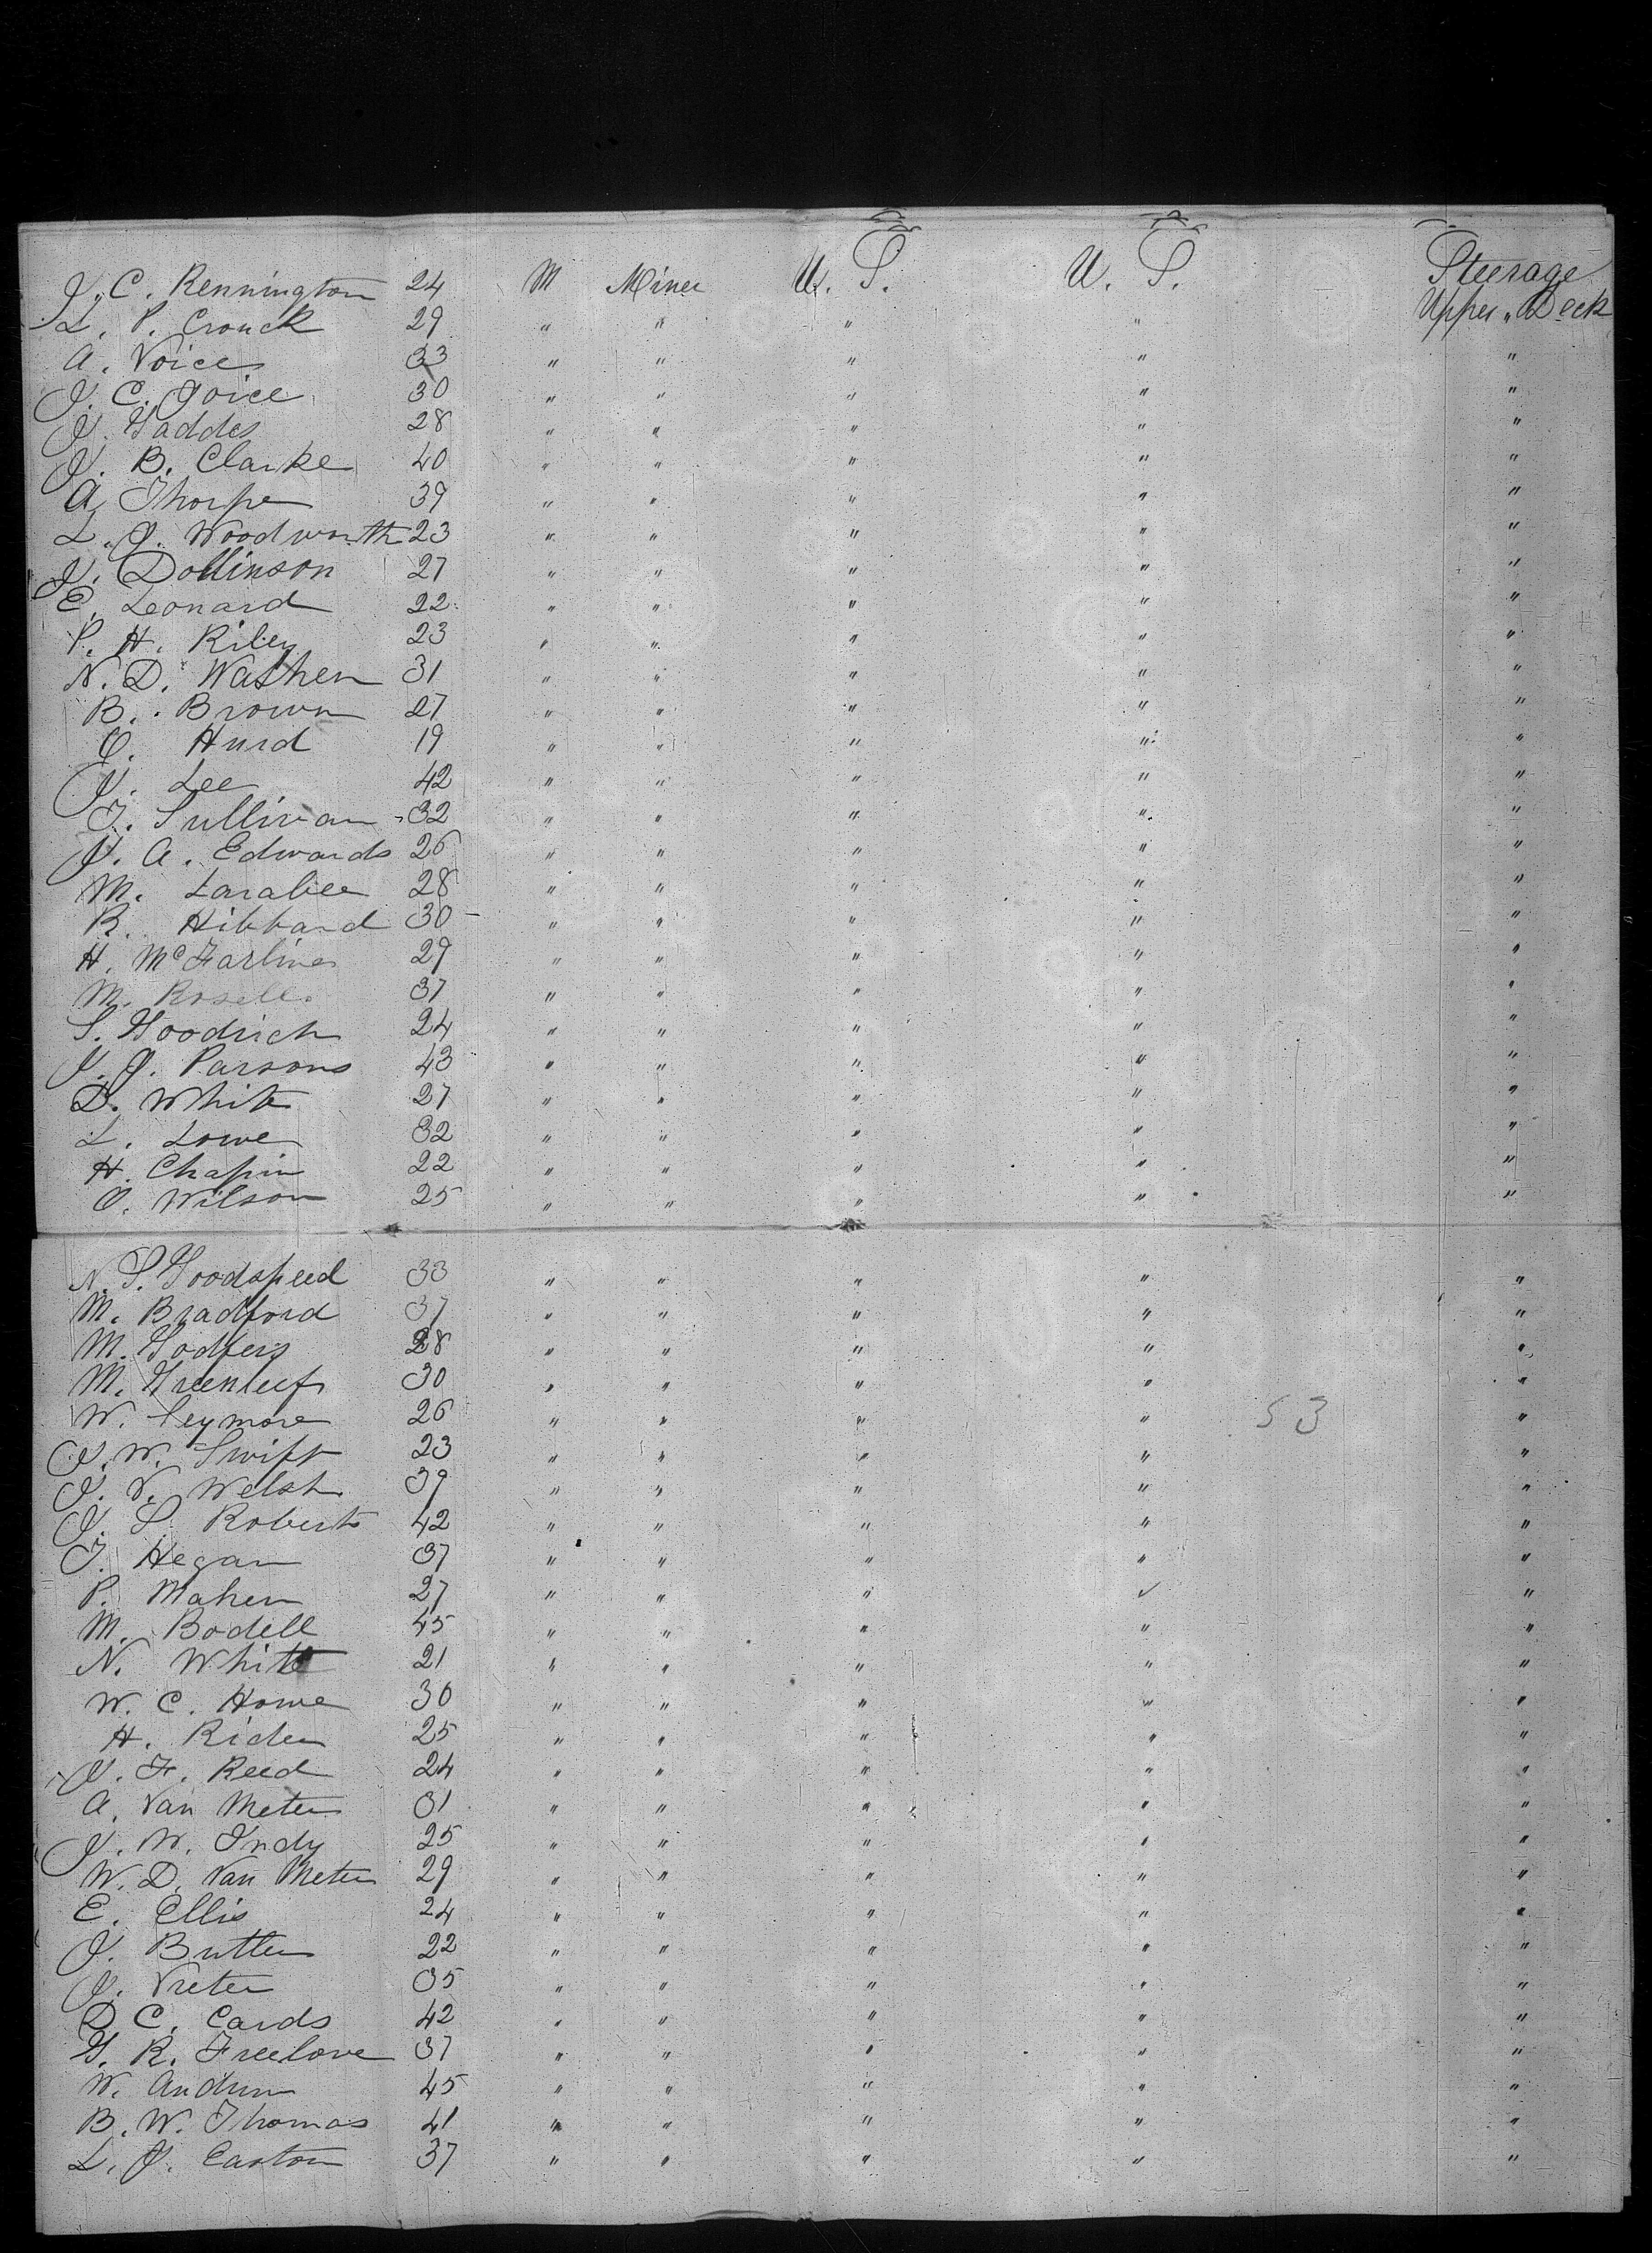 J. C. Rennington 24 M Miner U. S. U. S. Steerage
L. P. Crouck 29 " " " " Upper " Deck
A. Voice 33 " " " " "
J. C. Joice 30 " " " " "
J. Gaddes 28 " " " " "
J. B. Clarke 40 " " " " "
A. Thorpe 39 " " " " "
L. J. Woodworth 23 " " " " "
J. Dollinson 27 " " " " "
E. Leonard 22 " " " " "
P. H. Riley 23 " " " " "
N. D. Wathen 31 " " " " "
B. Brown 27 " " " " "
O. Hurd 19 " " " " "
J. Lee 42 " " " " "
T. Sullivan 32 " " " " "
J. A. Edwards 26 " " " " "
M. Larabee 28 " " " " "
R. Hibbard 30 " " " " "
H. McFarline 29 " " " " "
M. Rosell 37 " " " " "
S. Goodrich 24 " " " " "
J. J. Parsons 43 " " " " "
D. White 27 " " " " "
L. Lowe 32 " " " " "
H. Chapin 22 " " " " "
O. Wilson 25 " " " " "
N. S. Goodspeed 33 " " " " "
M. Bradford 37 " " " " "
M. Godfery 28 " " " " "
M. Greenleef 30 " " " " "
W. Seymore 26 " " " " 53 "
J. W. Swift 23 " " " " "
J. V. Welsh 39 " " " " "
J. S. Roberts 42 " " " " "
T. Hegan 37 " " " " "
P. Maher 27 " " " " "
M. Bodell 45 " " " " "
N. White 21 " " " " "
W. C. Howe 30 " " " " "
H. Rider 25 " " " " "
J. F. Reed 24 " " " " "
A. Van Meter 31 " " " " "
J. W. Indy 25 " " " " "
W. D. Van Meter 29 " " " " "
E. Ellis 24 " " " " "
J. Butler 22 " " " " "
J. Vreter 35 " " " " "
D C. Cards 42 " " " " "
G. R. Freelove 37 " " " " "
W. 45 " " " " "
B. W. Thomas 41 " " " " "
L. J. Easton 37 " " " " "